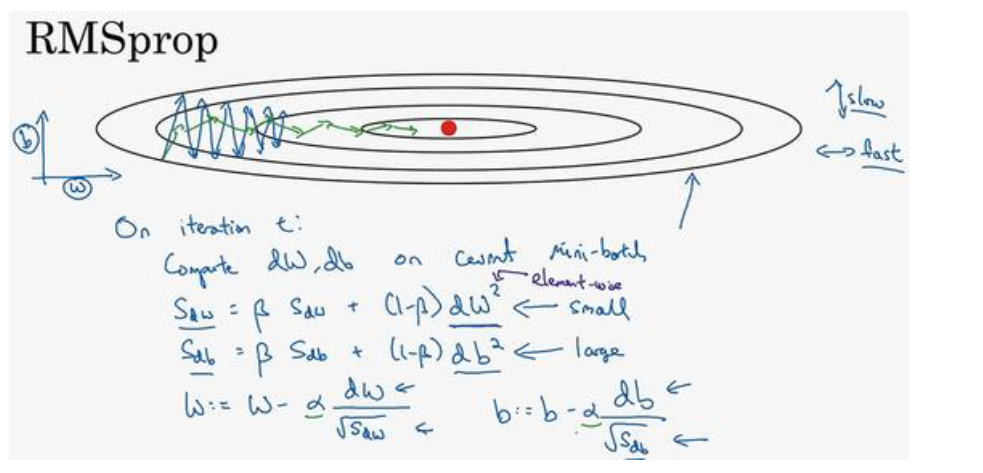 RMSprop
slow
fast
b
w
On iteration t:
Compute dW, db on current mini-batch
element-wise
S_dw = β S_dw + (1-β) dW² ← small
S_db = β S_db + (1-β) db² ← large
W := W - α dW/√S_dw ← b := b - α db/√S_db ←